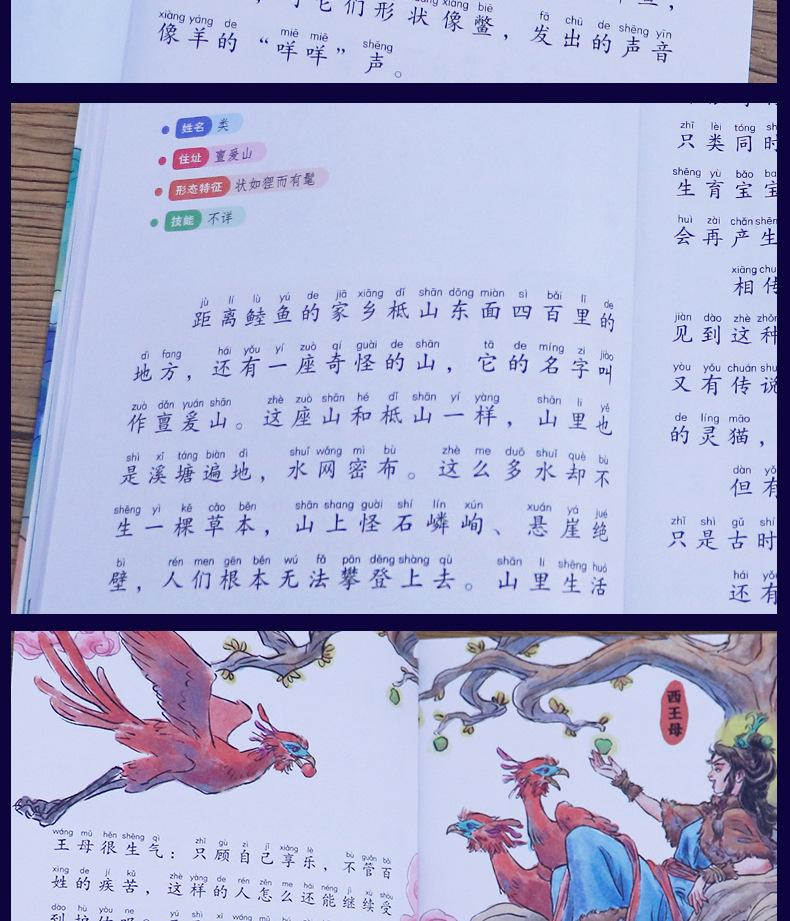 们形状像鳖，发出的声音
xiàng yáng de miē miē shēng
像羊的“咩咩”声。
姓名 类
住址 亶爰山
形态特征 状如狸而有髦
技能 不详
jù lí lù yú de jiā xiāng dǐ shān dōng miàn sì bǎi lǐ de
距离鯥鱼的家乡柢山东面四百里的
dì fang hái yǒu yí zuò qí guài de shān tā de míng zi jiào
地方，还有一座奇怪的山，它的名字叫
zuò dǎn yuán shān zhè zuò shān hé dǐ shān yí yàng shān li yě
作亶爰山。这座山和柢山一样，山里也
shì xī táng biàn dì shuǐ wǎng mì bù zhè me duō shuǐ què bù
是溪塘遍地，水网密布。这么多水却不
shēng yì kē cǎo běn shān shang guài shí lín xún xuán yá jué
生一棵草本，山上怪石嶙峋、悬崖绝
bì rén men gēn běn wú fǎ pān dēng shàng qù shān li shēng huó
壁，人们根本无法攀登上去。山里生活
zhǐ lèi tóng
只类同时
shēng yù bǎo
生育宝宝
huì zài chǎn shēn
会再产生
xiāng chu
相传
jiàn dào zhè zhǒn
见到这种
yòu yǒu chuán shu
又有传说
de líng māo
的灵猫，
dàn yǒ
但有
zhǐ shì gǔ shí
只是古时
hái yǒ
还有
西王母
wáng mǔ hěn shēng qì zhǐ gù zì jǐ xiǎng lè bù guǎn bǎi
王母很生气：只顾自己享乐，不管百
xìng de jí kǔ zhè yàng de rén zěn me hái néng jì xù shòu
姓的疾苦，这样的人怎么还能继续受